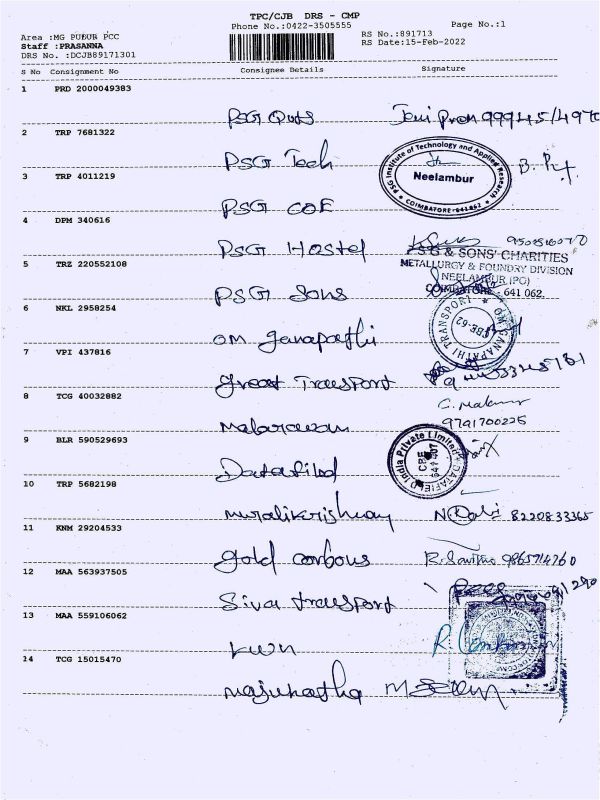 TPC/CJB DRS - CMP
Phone No.:0422-3505555
Page No.:1
Area :MG PUDUR PCC
Staff :PRASANNA
DRS No. :DCJB89171301
RS No.:891713
RS Date:15-Feb-2022
S No Consignment No Consignee Details Signature
1 PRD 2000049383
PSG
2 TRP 7681322
PSG Tech
PSG Institute of Technology and Applied Research
Neelambur
COIMBATORE-641 062
3 TRP 4011219
PSG COE
4 DPM 340616
PSG Hostel
PSG & SONS' CHARITIES
METALLURGY & FOUNDRY DIVISION
NEELAMBUR (PG)
COIMBATORE - 641 062.
5 TRZ 220552108
PSG Sons
6 NKL 2958254
om ganapathi
OM GANAPATHI TRANSPORT
CBE-62
7 VPI 437816
great Transport
8 TCG 40032882
9791700225
9 BLR 590529693
Datafild
DATAFIELD India Private Limited
CBE
641 407
10 TRP 5682198
muralikrishnan
8220833365
11 KNM 29204533
gold carbons
12 MAA 563937505
Siva transport
13 MAA 559106062
14 TCG 15015470